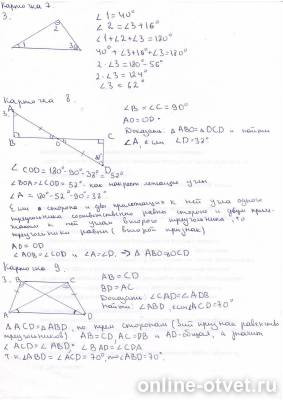 Карточка 7.
3.
1
2
3
∠1 = 40°
∠2 = ∠3 + 16°
∠1 + ∠2 + ∠3 = 180°
40° + ∠3 + 16° + ∠3 = 180°
2·∠3 = 180° - 56°
2·∠3 = 124°
∠3 = 62°
Карточка 8.
3.
A
B
O
C
D
∠B = ∠C = 90°
AO = OD
Доказать: △ABO = △DCO и найти
∠A, если ∠D = 38°
∠COD = 180° - 90° - 38° = 52°
∠BOA = ∠COD = 52° - как накрест лежащие углы
∠A = 180° - 52° - 90° = 38°
Если сторона и два прилежащих к ней угла одного
треугольника соответственно равны стороне и двум приле-
жащим к ней углам второго треугольника, то
треугольники равны (второй признак)
AO = OD
∠AOB = ∠COD и ∠A = ∠D ⇒ △ABO = △OCD
Карточка 9.
3.
B
C
A
D
AB = CD
BD = AC
Доказать: ∠CAD = ∠ADB
Найти: ∠ABD, если ∠ACD = 70°
△ACD = △ABD, по трем сторонам (3ий признак равенства
треугольников) AB = CD, AC = DB и AD - общая, а значит
∠ACD = ∠ABD, ∠BAD = ∠CDA
т.к ∠ABD = ∠ACD = 70°, то ∠ABD = 70°.
online-otvet.ru